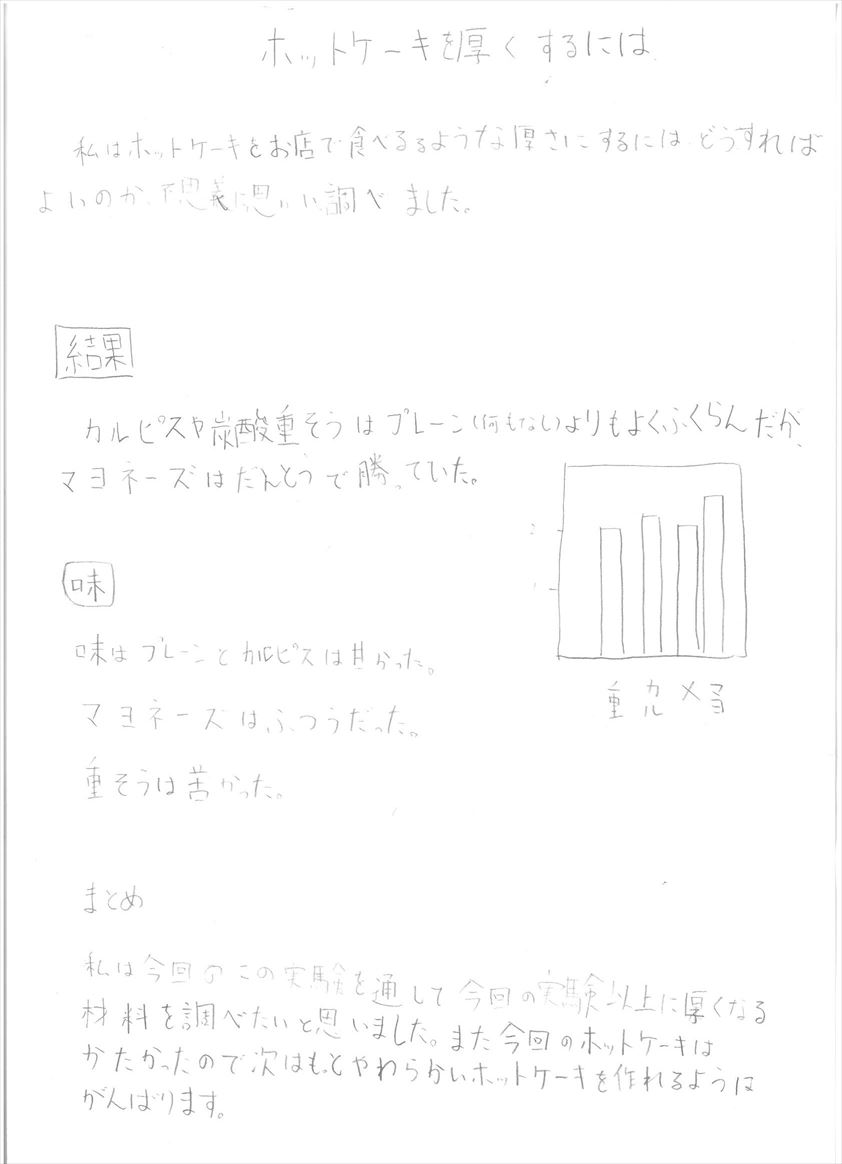 ホットケーキを厚くするには
私はホットケーキをお店で食べるるような厚さにするにはどうすれば
よいのか、不思義に思いい調べました。
結果
カルピスや炭酸重そうはプレーン(何もない)よりもよくふくらんだが、
マヨネーズはだんとつで勝っていた。
2
1
重 カル メ マヨ
味
味はプレーンとカルピスは甘かった。
マヨネーズはふつうだった。
重そうは苦かった。
まとめ
私は今回のこの実験を通して今回の実験以上に厚くなる
材料を調べたいと思いました。また今回のホットケーキは
かたかったので次はもっとやわらかいホットケーキを作れるように
がんばります。